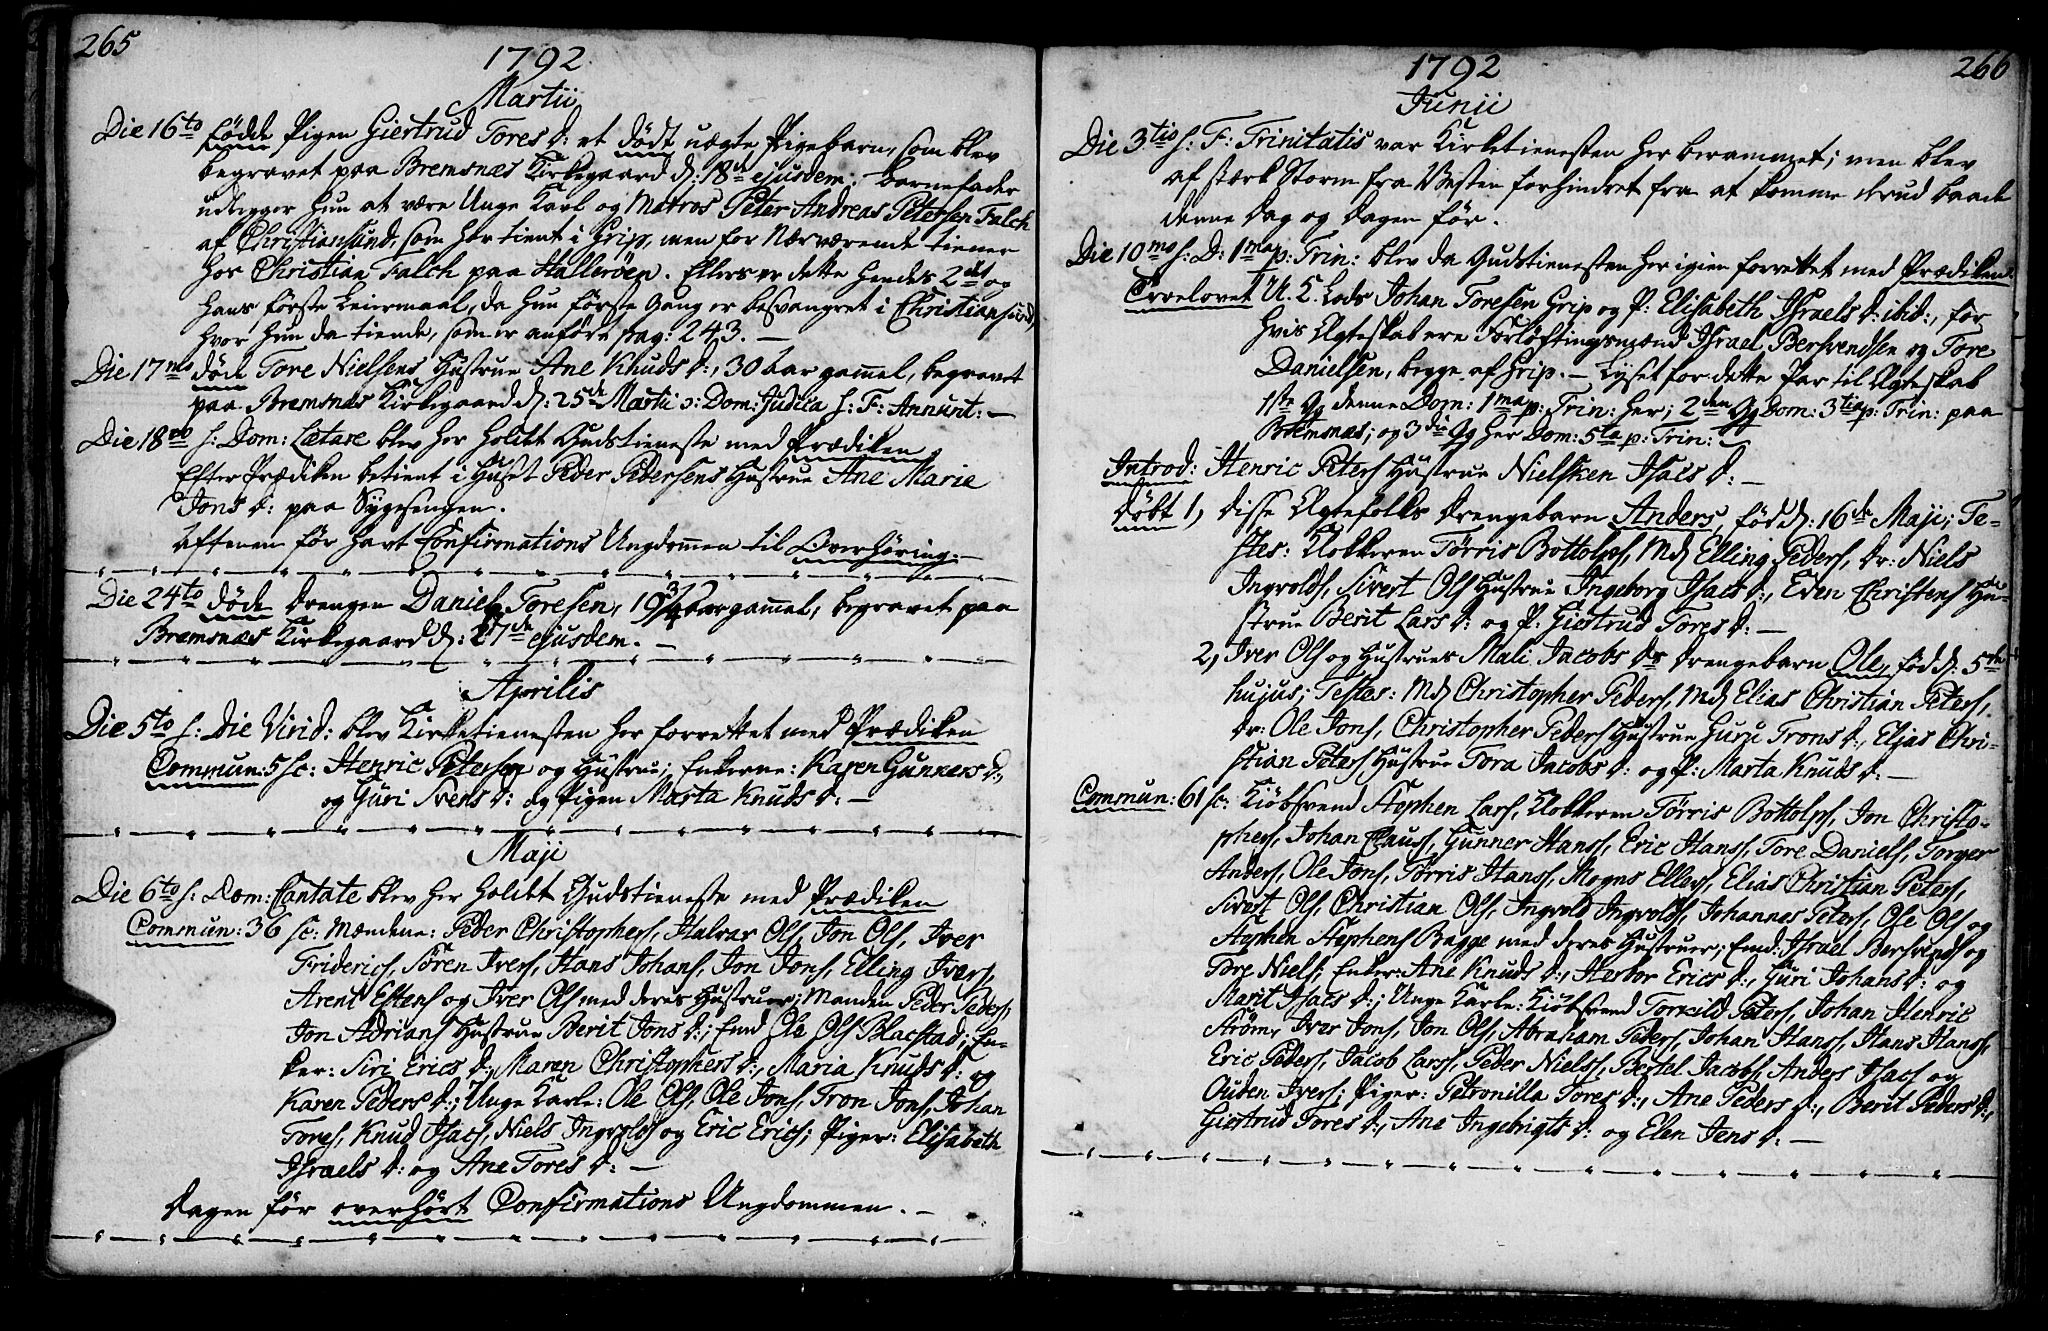 265
1792
Martii
Die 16to fødde Pigen Giertrud Tores D: et dødt uægte Pigebarn, som blev
begravet paa Bremsnæs Kirkegaard d: 18de ejusdem. Barnefader
udlegger hun at være Unge Karl og Matros Peter Andreas Petersen Falch
af Christiansund, som har tient i Grip, men for Nærværende tiener
hos Christian Falch paa Hallerøen. Ellers er dette hendes 2det og
hans første Leiermaal, da hun første Gang er besvangret i Christiansund,
hvor hun da tiende, som er anført pag: 243. —
Die 17mo døde Tore Nielsens Hustrue Ane Knuds D:, 30 aar gammel, begravet
paa Bremsnæs Kirkegaard d: 25de Martii ɔ: Dom: Judica s: F: Annunt: —
Die 18vo s: Dom: Lætare blev her holdt Gudstieneste med Prædiken
Efter Prædiken betient i Huset Peder Pedersens Hustrue Ane Marie
Jons D: paa Sygesengen.
Aftenen før havt Confirmations Ungdommen til Overhøring. —
Die 24to døde Drengen Daniel Toresen, 19 3/4 aar gammel, begravet paa
Bremsnæs Kirkegaard d: 27de ejusdem. —
Aprilis
Die 5to s: Die Virid: blev Kirketienesten her forrettet med Prædiken
Commun: 5 sc: Henric Petersen og Hustrue; Enkerne: Karen Gunners D:,
og Guri Svens D: og Pigen Marta Knuds D: —
Maji
Die 6to s: Dom: Cantate blev her holdt Gudstieneste med Prædiken
Commun: 36 sc: Mændene: Peder Christophers, Halvar Ols, Jon Ols, Iver
Friderics, Søren Ivers, Hans Johans, Jon Jons, Elling Ivers,
Arent Estens og Iver Ols med deres Hustruer; Manden Peder Peders,
Jon Adrians Hustrue Berit Jons D:; Enkd Ole Ols Blacstad; En-
ker: Siri Erics D:, Maren Christophers D:, Maria Knuds D: og
Karen Peders D:; Unge Karle: Ole Ols, Ole Jons, Tron Jons, Johan
Tores, Knud Isacs, Niels Ingvolds og Eric Erics; Piger: Elisabeth
Israels D: og Ane Tores D: —
Dagen før overhørt Confirmations Ungdommen. —
1792
266
Junii
Die 3tio s: F: Trinitatis var Kirketienesten her berammet; men blev
af stærk Storm fra Vesten forhindret fra at komme herud baade
denne Dag og Dagen før.
Die 10mo s: D: 1ma p: Trin: blev da Gudstienesten her igien forrettet med Prædiken.
Troelovet U. K. Lods Johan Toresen Grip og P: Elisabeth Israels D: ibid:, for
hvis Ægteskab ere Forløftningsmænd Israel Bersvendsen og Tore
Danielsen, begge af Grip. — Lyset for dette Par til Ægteskab
1ste Gg denne Dom: 1ma p: Trin: her; 2den Gg Dom: 3tia p: Trin: paa
Bremsnæs; og 3die Gg her Dom: 5ta p: Trin: —
Introd: Henric Peters Hustrue Nielsken Isacs D: —
Døbt 1, disse Ægtefolks Drengebarn Anders, fød d: 16de Maji; Te-
stes: Klokkeren Tørris Bottolfs, Md Elling Peders, Dr: Niels
Ingvolds, Sivert Ols Hustrue Ingeborg Isacs D:, Even Christens Hu-
strue Berit Lars D: og P: Giertrud Tores D: —
2, Iver Ols og Hustrues Mali Jacobs Ds Drengebarn Ole, fød d: 5te
hujus; Testes: Md Christopher Peders, Md Elias Christian Peters,
Dr: Ole Jons, Christopher Peders Hustrue Guru Trons D:, Elias Chri-
stian Peters Hustrue Tora Jacobs D: og P: Marta Knuds D: —
Commun: 61 sc: Kiøbsvend Stephen Lars, Klokkeren Tørris Bottolfs, Jon Christo-
phers, Johan Claus, Gunner Hans, Eric Hans, Tore Daniels, Torger
Anders, Ole Jons, Tørris Hans, Mogns Ellers, Elias Christian Peters,
Sivert Ols, Christian Ols, Ingvold Ingvolds, Johannes Peters, Ole Ols og
Stephen Stephens Bagge med deres Hustruer; Enkd: Israel Bersvends og
Tore Niels; Enker: Ane Knuds D:, Herbor Erics D:, Guri Johans D: og
Marit Isacs D:; Unge Karle: Kiøbsvend Torkild Peters, Johan Henric
Strøm, Iver Jons, Jon Ols, Abraham Peders, Johan Hans, Hans Hans,
Eric Peders, Jacob Lars, Peder Niels, Bertel Jacobs, Anders Isacs og
Ouden Ivers; Piger: Petronilla Tores D:, Ane Peders D:, Berit Peders D:,
Giertrud Tores D:, Ane Ingebrigts D: og Elen Jens D: —